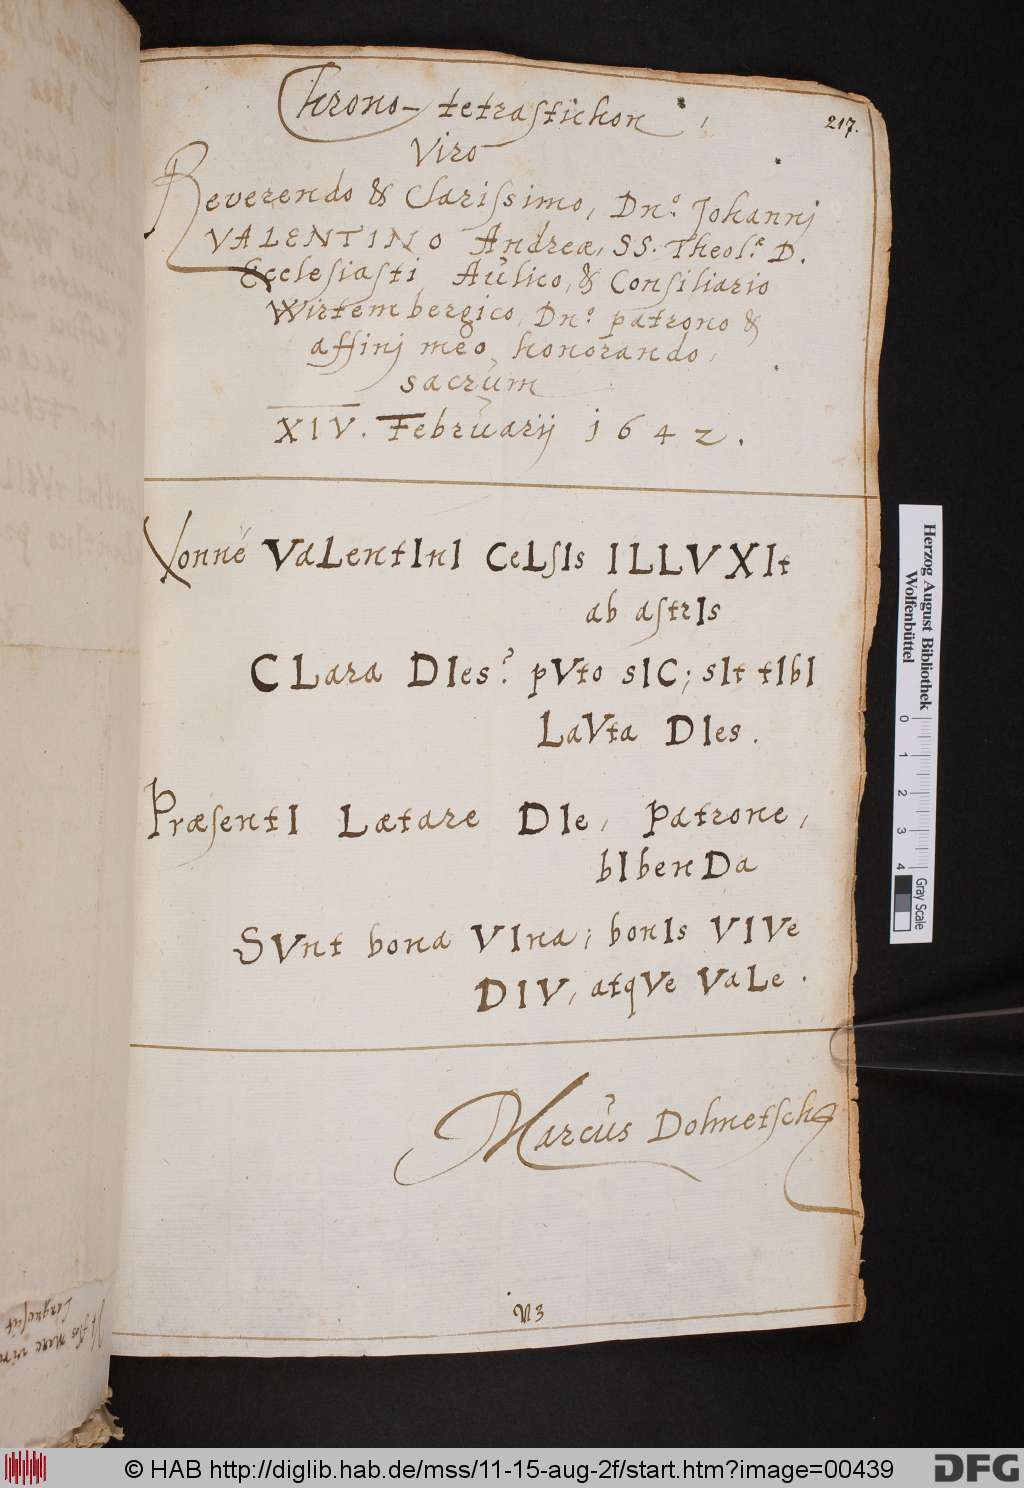 Chrono-tetrastichon,
217.
Viro
Reverendo & Clarissimo, Dn: Johannj
VALENTINO Andreæ, SS. Theol: D.
Ecclesiasti Aulico, & Consiliario
Wirtembergico, Dn: patrono &
affinj meo honorando,
sacrum
XIV. Februarij 1642.
Nonné VaLentInI CeLsIs ILLVXIt
ab astrIs
CLara DIes? pVto sIC; sIt tIbI
LaVta DIes.
PræsentI Lætare DIe, patrone,
bIbenDa
SVnt bona VIna; bonIs VIVe
DIV, atqVe VaLe.
Marcus Dolmetsch
N3
Herzog August Bibliothek
Wolfenbüttel
0 1 2 3 4
Gray Scale
© HAB http://diglib.hab.de/mss/11-15-aug-2f/start.htm?image=00439
DFG